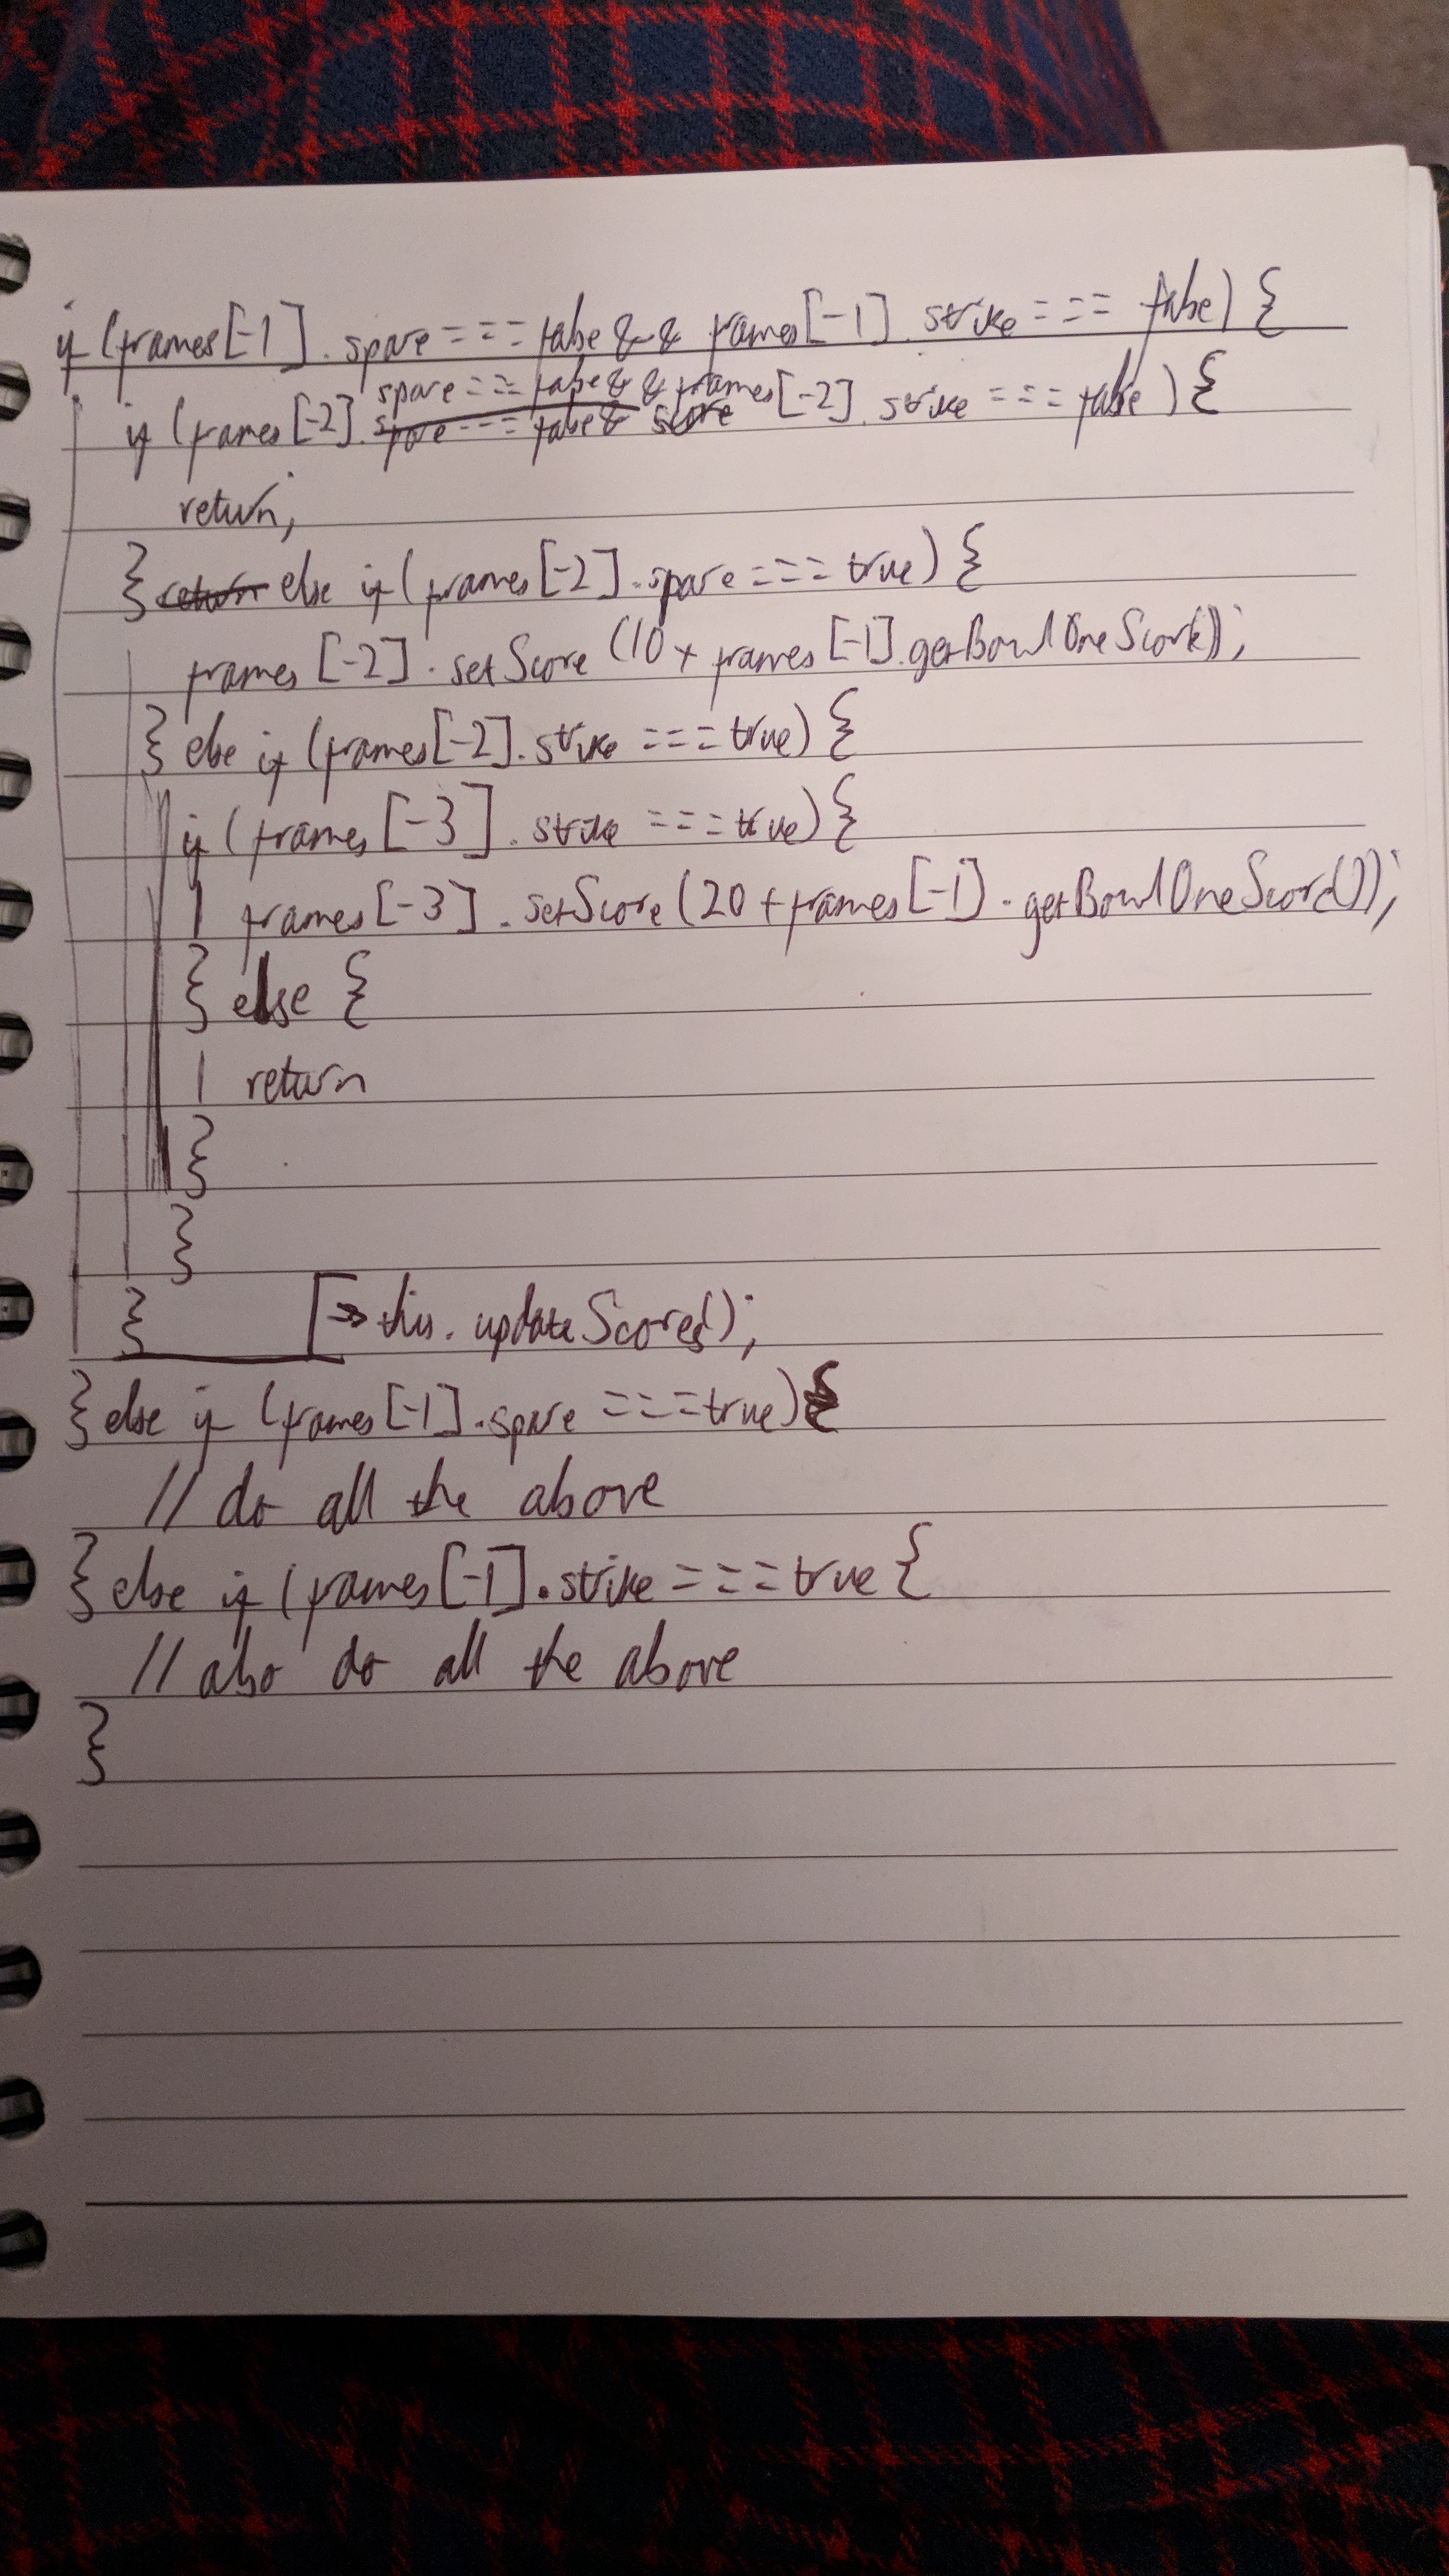 if (frames[-1].spare === false && frames[-1].strike === false) {
if (frames[-2].spare === false && frames[-2].strike === false) {
return;
} else if (frames[-2].spare === true) {
frames[-2].setScore(10 + frames[-1].getBowlOneScore());
} else if (frames[-2].strike === true) {
if (frames[-3].strike === true) {
frames[-3].setScore(20 + frames[-1].getBowlOneScore());
} else {
return
}
}
} → this.updateScores();
} else if (frames[-1].spare === true) {
// do all the above
} else if (frames[-1].strike === true {
// also do all the above
}